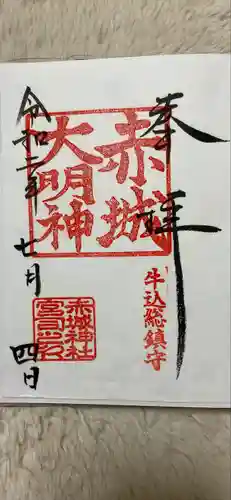 奉拝
赤城
大明神
牛込総鎮守
赤城神社
宮司之印
令和二年七月四日